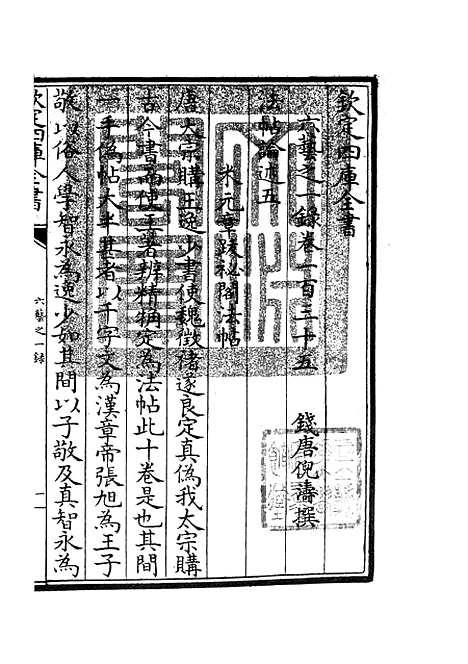 欽定四庫全書
六藝之一錄卷一百三十五
錢唐倪濤撰
法帖論述五
米元章跋祕閣法帖
唐太宗購王逸少書使魏徵褚遂良定真偽我太宗購
古今書而使王著辨精確定為法帖此十卷是也其間
一手偽帖太半甚者以千字文為漢章帝張旭為王子
敬以俗人學智永為逸少如其間以子敬及真智永為
欽定四庫全書
六藝之一錄